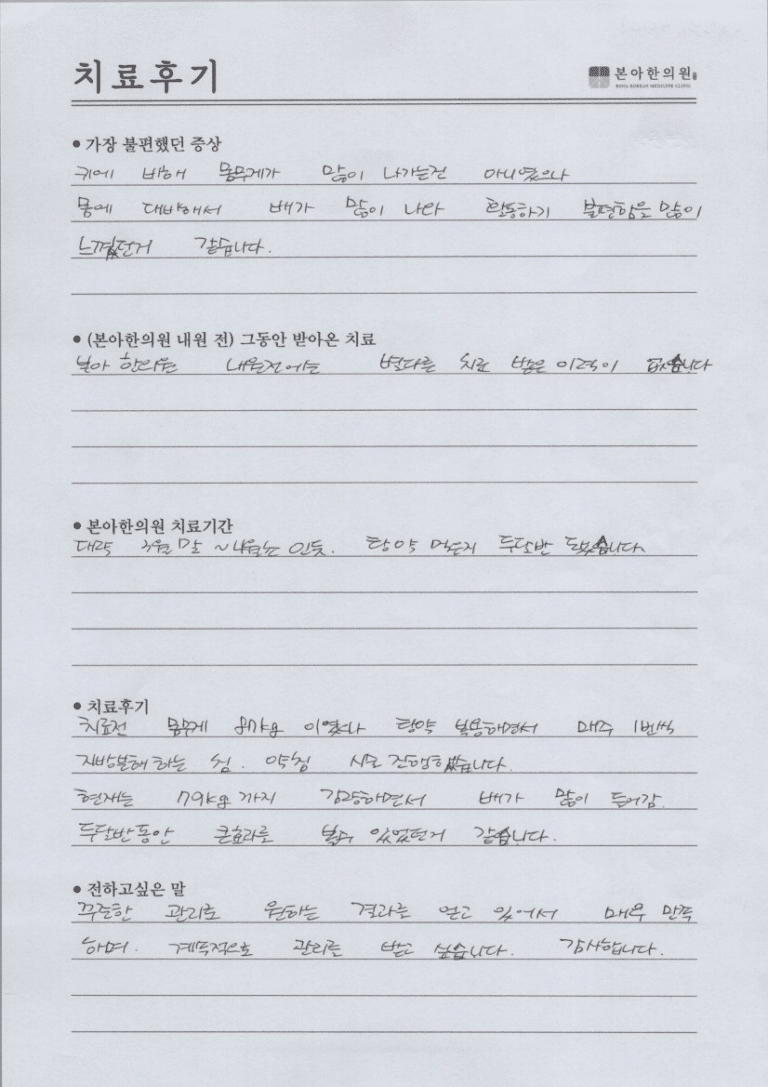 치료후기
본아한의원
BONA KOREAN MEDICINE CLINIC
● 가장 불편했던 증상
키에 비해 몸무게가 많이 나가는건 아니였으나
몸에 대비해서 배가 많이 나와 활동하기 불편함을 많이
느꼈던거 같습니다.
● (본아한의원 내원 전) 그동안 받아온 치료
본아 한의원 내원전에는 별다른 치료 받은 이력이 없습니다
● 본아한의원 치료기간
대략 3월 말 ~ 인듯. 탕약 먹은지 두달반 됐습니다.
● 치료후기
치료전 몸무게 87kg 이였으나 탕약 복용하면서 매주 1번씩
지방분해 하는 침. 약침 시로 진행했습니다.
현재는 79kg 까지 감량하면서 배가 많이 들어감.
두달반동안 큰효과를 볼수 있었던거 같습니다.
● 전하고싶은 말
꾸준한 관리로 원하는 결과를 얻고 있어서 매우 만족
하며. 계속적으로 관리를 받고 싶습니다. 감사합니다.